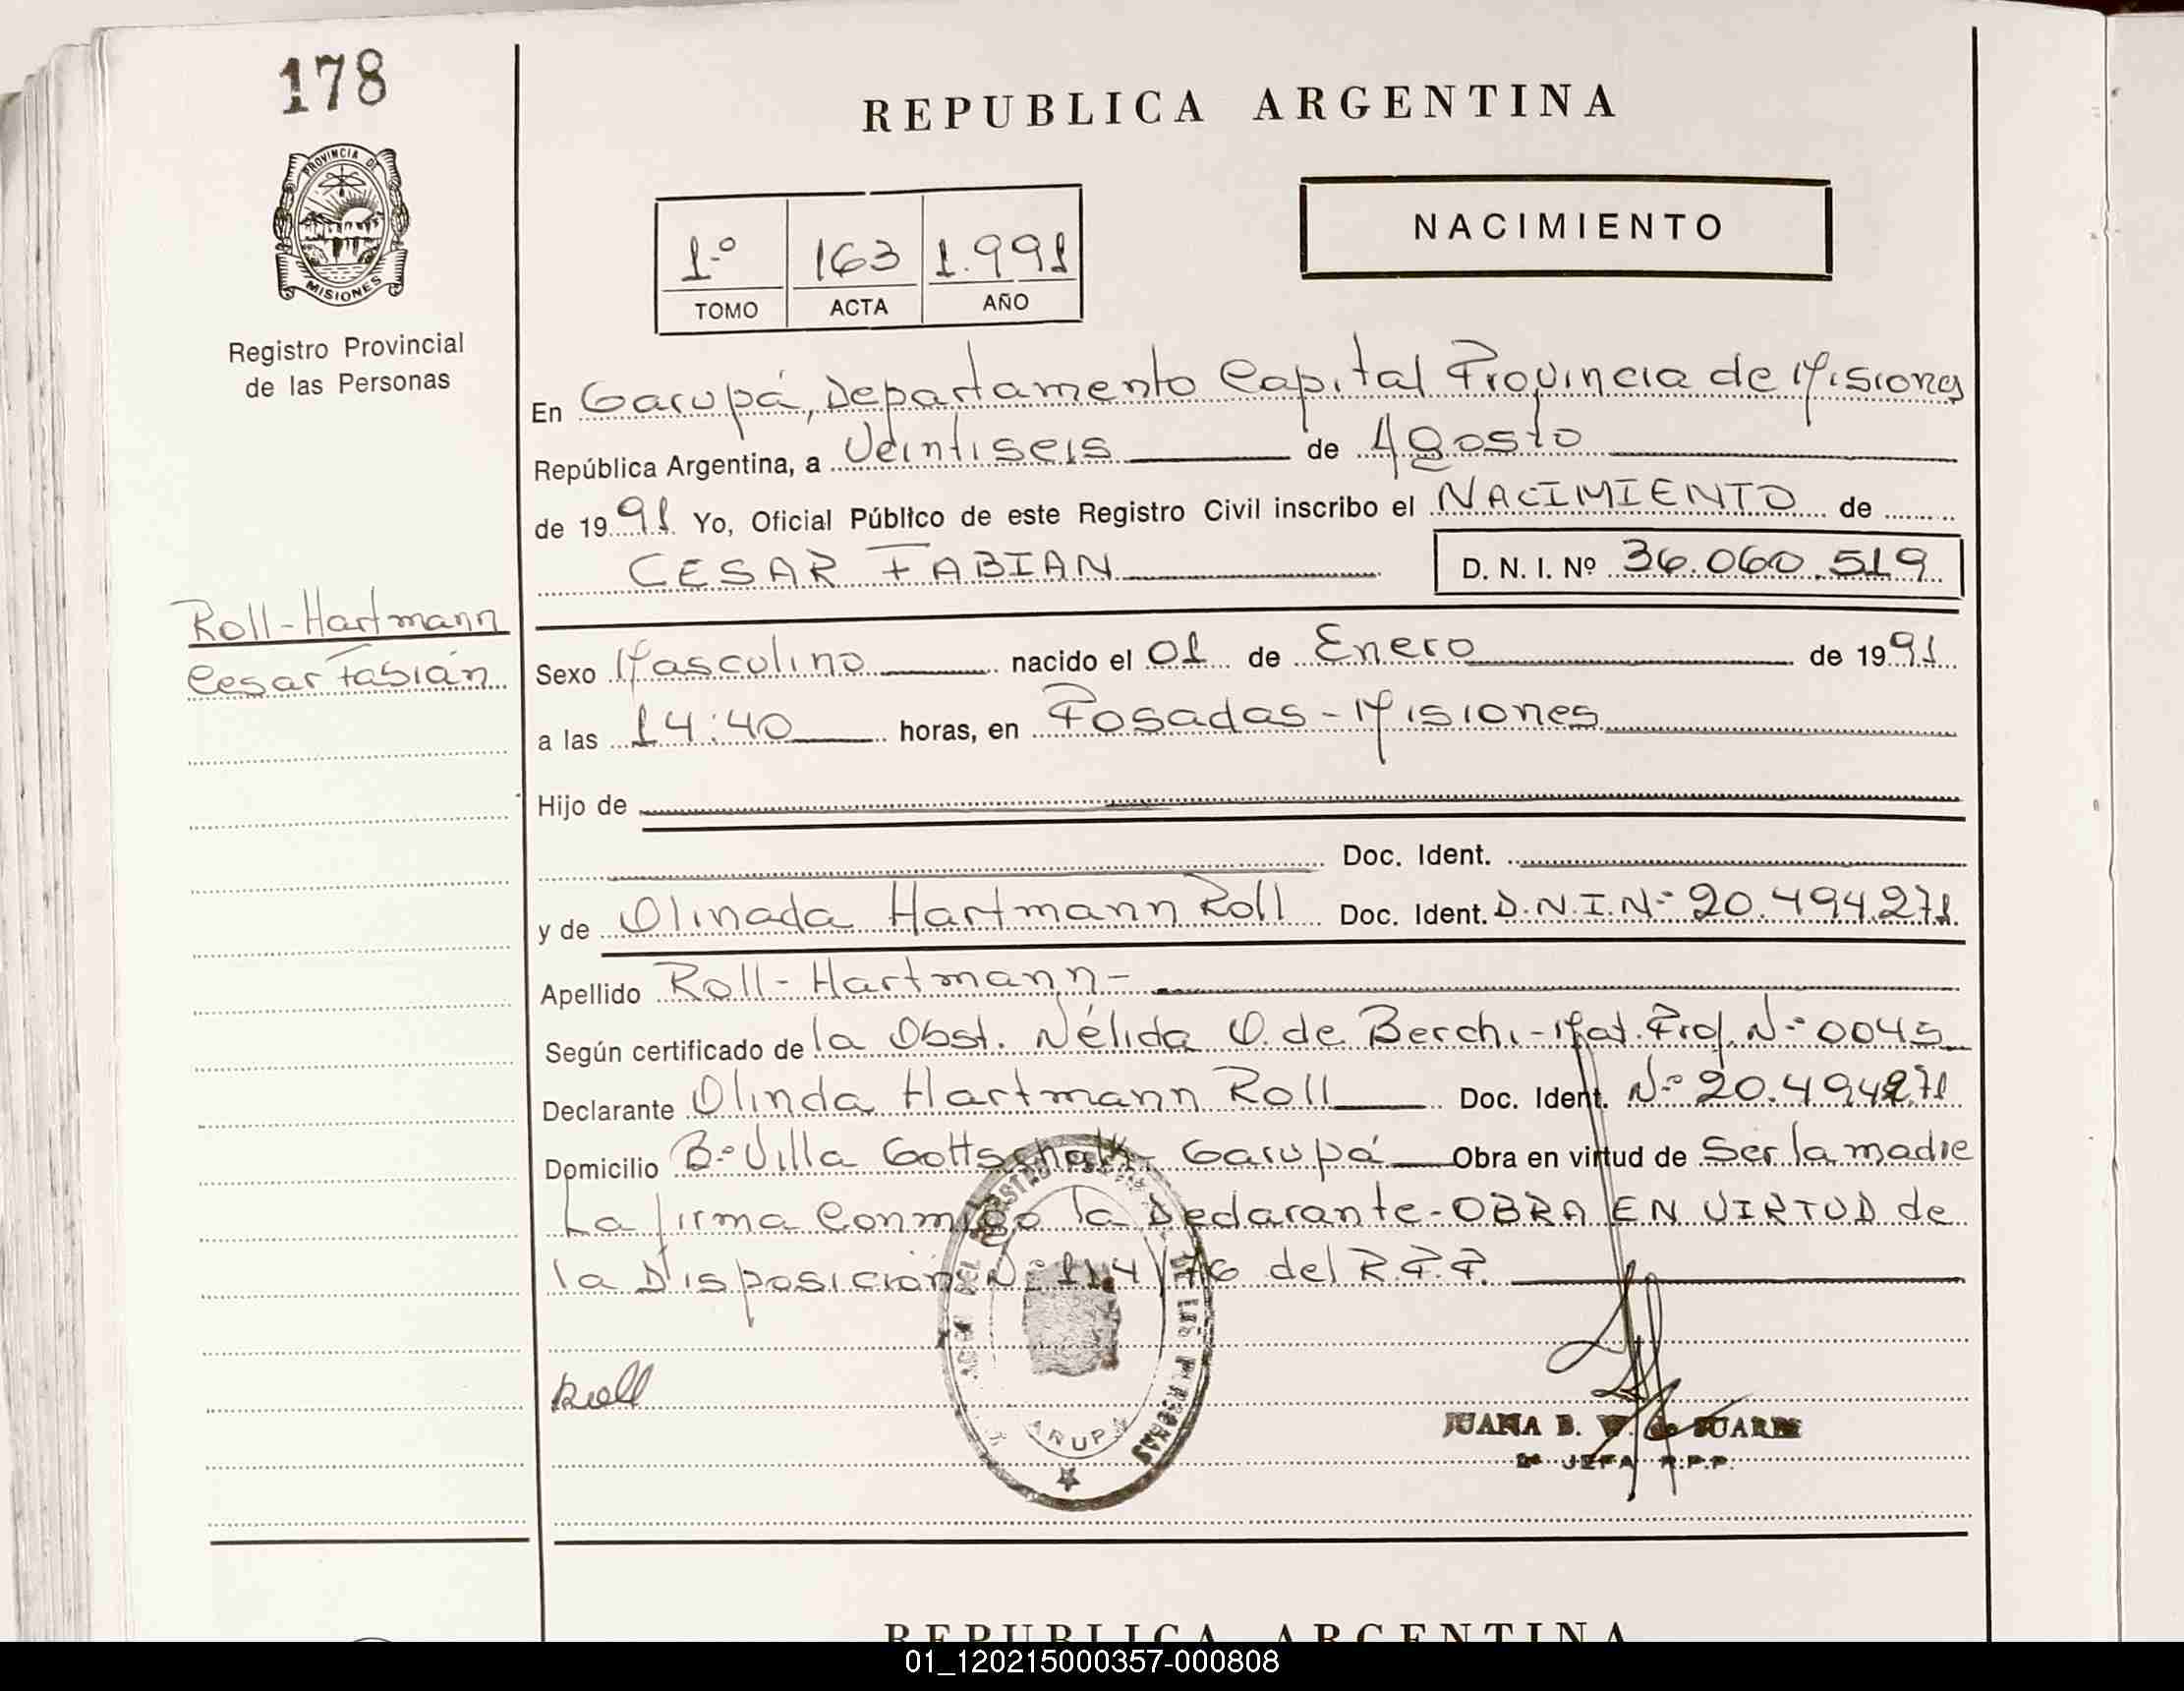 178
REPUBLICA ARGENTINA
PROVINCIA DE
MISIONES
Registro Provincial
de las Personas
1.º 163 1.991
TOMO ACTA AÑO
NACIMIENTO
En Garupá, Departamento Capital Provincia de Misiones
República Argentina, a Veintiseis de Agosto
de 1991 Yo, Oficial Público de este Registro Civil inscribo el NACIMIENTO de
CESAR FABIAN D. N. I. Nº 36.060.519
Roll-Hartmann
Cesar Fabián
Sexo Masculino nacido el 01 de Enero de 1991
a las 14:40 horas, en Posadas - Misiones
Hijo de
Doc. Ident.
y de Olinada Hartmann Roll Doc. Ident. D.N.I.Nº 20.494.271
Apellido Roll-Hartmann-
Según certificado de la Obst. Nélida O. de Berchi-Mat. Prof. Nº 0045
Declarante Olinda Hartmann Roll Doc. Ident. Nº 20.494271
Domicilio Bº Villa Gottschalk - Garupá Obra en virtud de Ser la madre
La firma Conmigo la Declarante-OBRA EN VIRTUD de
la Disposición Nº 114/76 del R.P.P.
Roll
DEL REGISTRO DE LAS PERSONAS
GARUPA
JUANA B. de SUAREZ
JEFA R.P.P.
REPUBLICA ARGENTINA
01_120215000357-000808